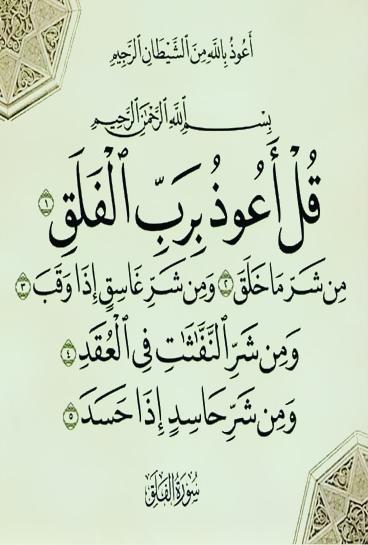 أَعُوذُ بِاللَّهِ مِنَ الشَّيْطَانِ الرَّجِيمِ
بِسْمِ اللَّهِ الرَّحْمَٰنِ الرَّحِيمِ
قُلْ أَعُوذُ بِرَبِّ الْفَلَقِ ١
مِن شَرِّ مَا خَلَقَ ٢ وَمِن شَرِّ غَاسِقٍ إِذَا وَقَبَ ٣
وَمِن شَرِّ النَّفَّٰثَٰتِ فِي الْعُقَدِ ٤
وَمِن شَرِّ حَاسِدٍ إِذَا حَسَدَ ٥
سُورَةُ الفَلَقِ